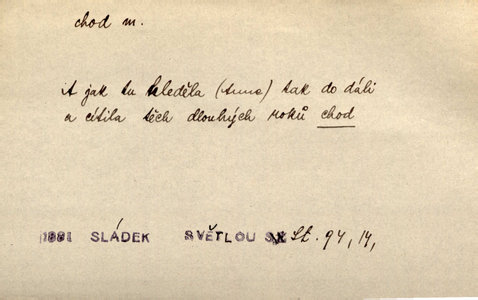 chod m.
A jak tu hleděla (Anna) tak do dáli
a cítila těch dlouhých roků chod
1881 SLÁDEK SVĚTLOU St. 94, 14,